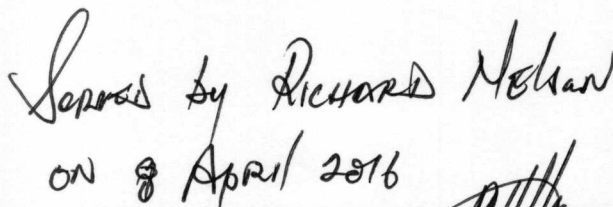 Served by RICHARD Nelson
ON 8 April 2016